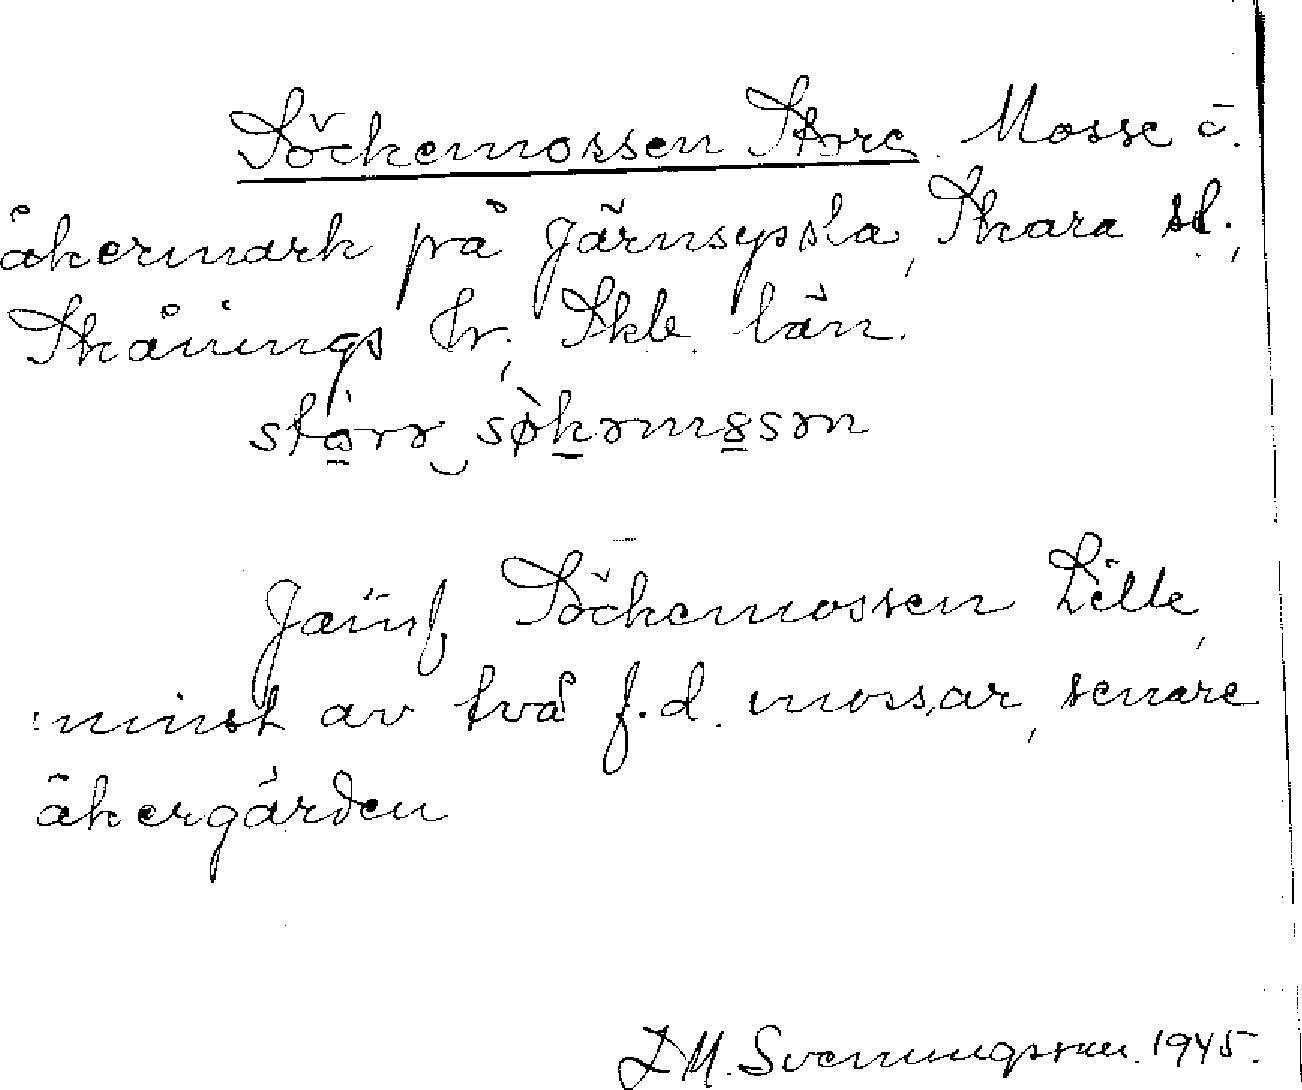 Söckemossen Store. Mosse o.
åkermark på Järnsyssla, Skara sl.,
Skånings hr, Skb. län.
Jämf. Söckemossen Lille,
minst av två f.d. mossar, senare
åkergärden
D.M. Svenungsson. 1945.